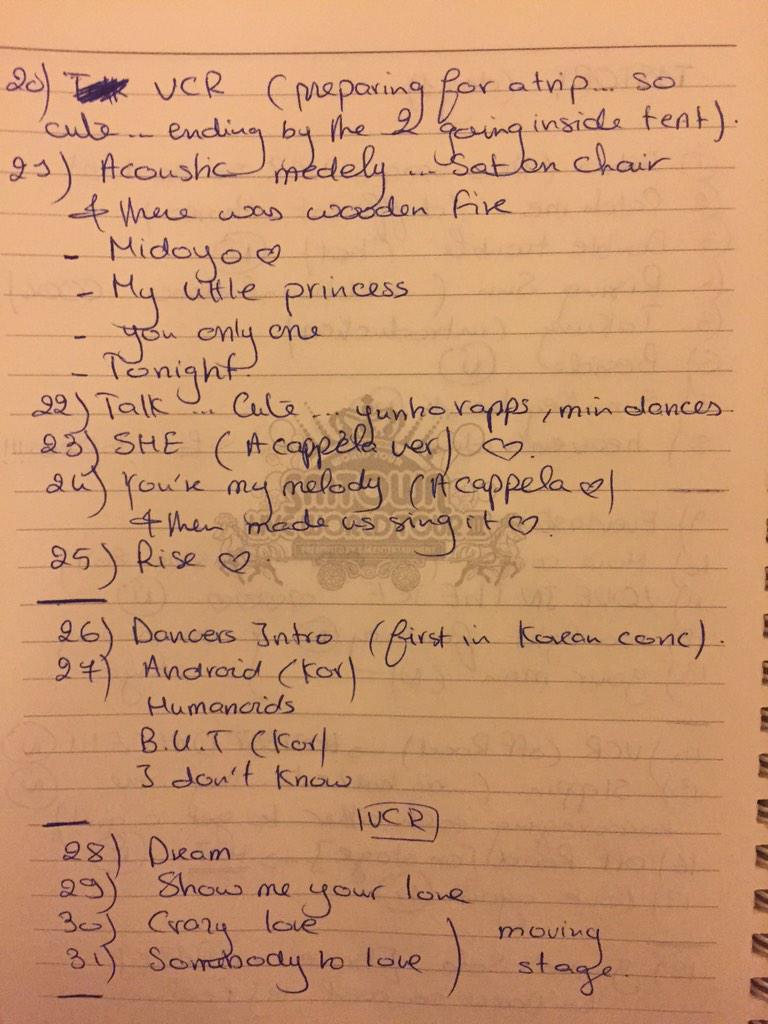 20) VCR (preparing for a trip... so
cute... ending by the 2 going inside tent).
21) Acoustic medely ... Sat on chair
& there was wooden fire
- Midoyo ♡
- My little princess
- you only one
- Tonight.
22) Talk ... Cute ... yunho rapps, min dances
23) SHE (Acappela ver) ♡.
24) You're my melody (Acappela ♡)
& then made us sing it ♡.
25) Rise ♡.
26) Dancers Intro (first in Korean conc).
27) Android (Kor)
Humanoids
B.U.T (Kor)
I don't know
VCR
28) Dream
29) Show me your love
30) Crazy love
31) Somebody to love
moving
stage.